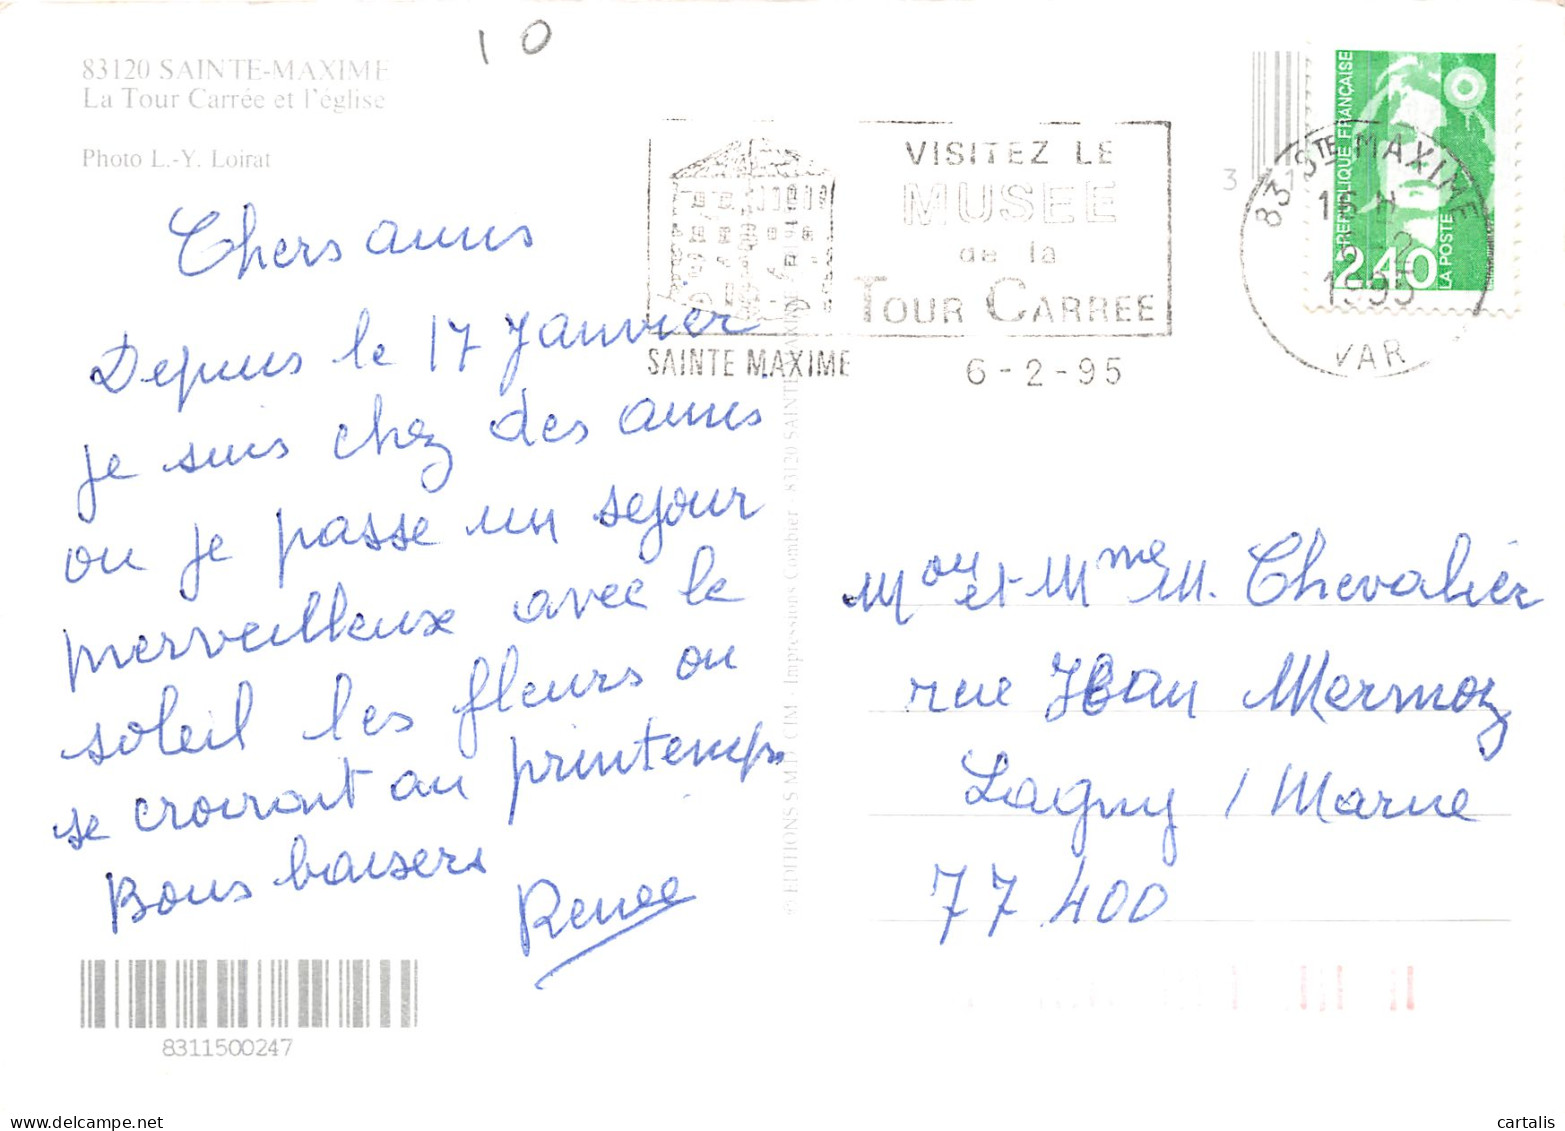 10
83120 SAINTE-MAXIME
La Tour Carrée et l'église
Photo L.-Y. Loirat
Chers amis
Depuis le 17 Janvier
je suis chez des amis
ou je passe un sejour
merveilleux avec le
soleil les fleurs on
se croiront au printemps
Bons baisers
Renee
8311500247
© EDITIONS S.M.D. CIM - Impressions Combier - 83120 SAINTE-MAXIME
VISITEZ LE
MUSEE
de la
TOUR CARREE
SAINTE MAXIME
6-2-95
83 STE MAXIME
1995
VAR
REPUBLIQUE FRANÇAISE
2,40
LA POSTE
3
et Mme M. Chevalier
rue Jean Mermoz
Lagny / Marne
77 400
cartalis